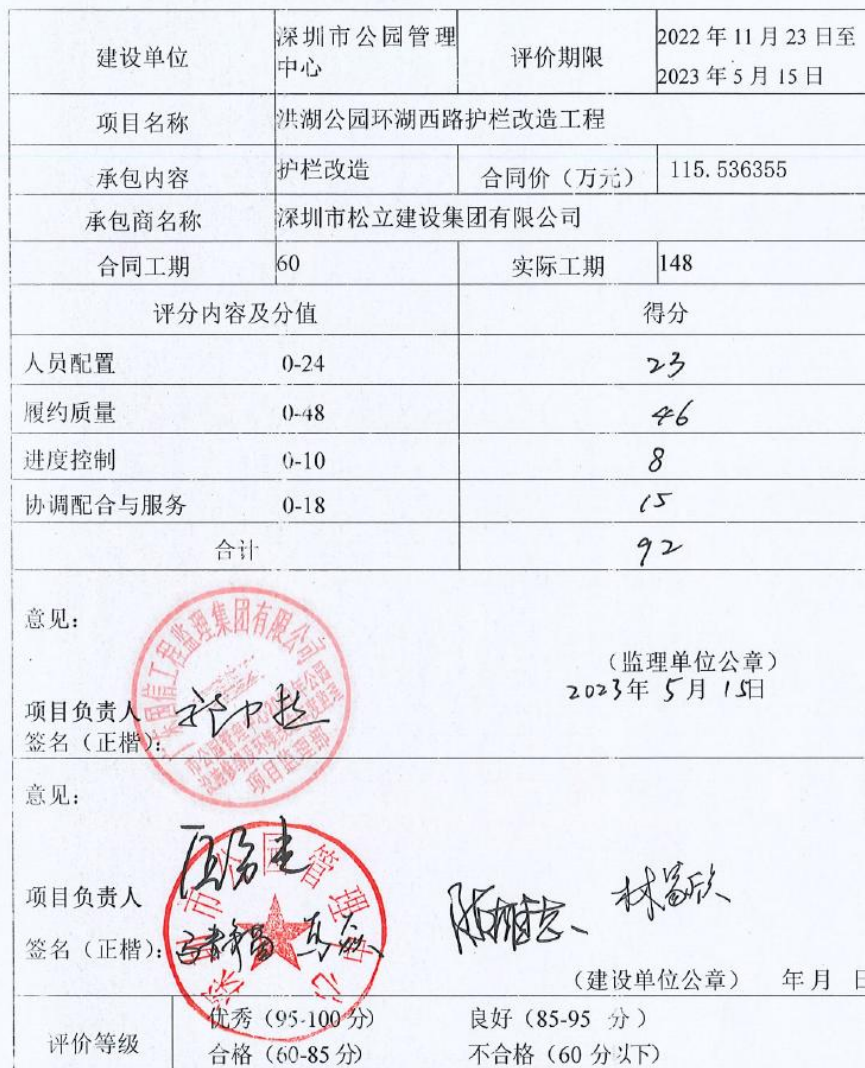 建设单位 深圳市公园管理中心 评价期限 2022 年 11 月 23 日至
2023 年 5 月 15 日
项目名称 洪湖公园环湖西路护栏改造工程
承包内容 护栏改造 合同价（万元） 115.536355
承包商名称 深圳市松立建设集团有限公司
合同工期 60 实际工期 148
评分内容及分值 得分
人员配置 0-24 23
履约质量 0-48 46
进度控制 0-10 8
协调配合与服务 0-18 15
合计 92
意见：
工程监理集团有限公司
项目监理部
（监理单位公章）
2023年 5月 15日
项目负责人
签名（正楷）：
意见：
深圳市公园管理中心
项目负责人
签名（正楷）：
林富欣
（建设单位公章） 年 月 日
评价等级 优秀（95-100 分） 良好（85-95 分）
合格（60-85 分） 不合格（60 分以下）